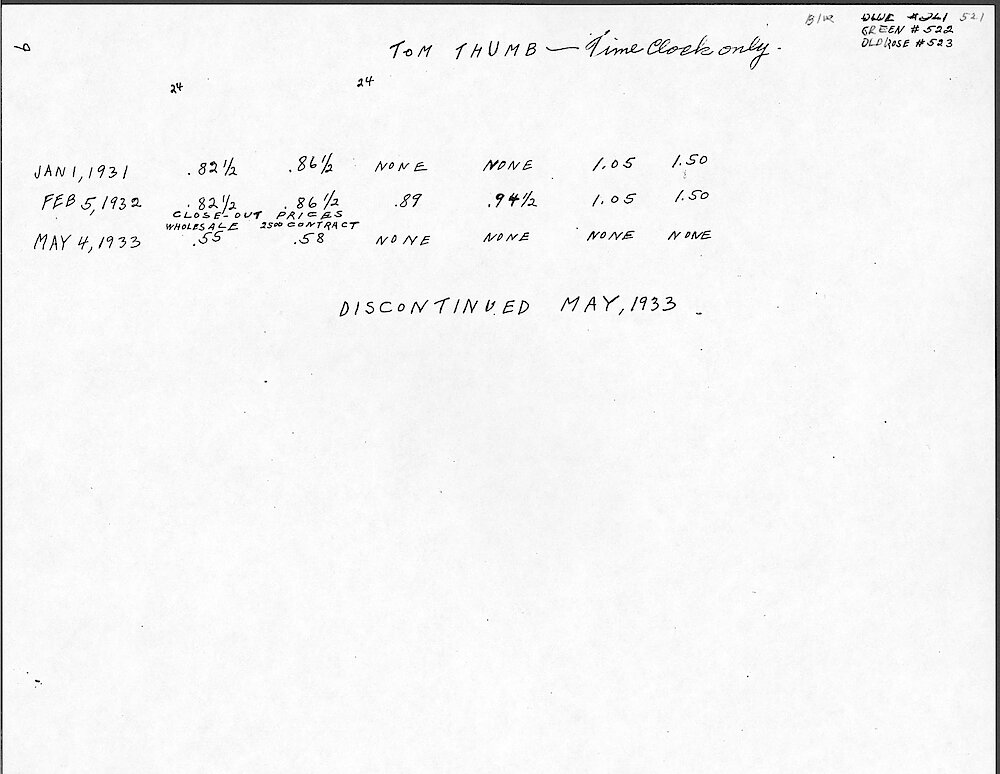 BLUE #521 521
GREEN #522
OLD ROSE #523
TOM THUMB — Time Clock only.
24 24
JAN 1, 1931 .82 1/2 .86 1/2 NONE NONE 1.05 1.50
FEB 5, 1932 .82 1/2 .86 1/2 .89 .94 1/2 1.05 1.50
CLOSE-OUT PRICES
WHOLESALE 2500 CONTRACT
MAY 4, 1933 .55 .58 NONE NONE NONE NONE
DISCONTINUED MAY, 1933